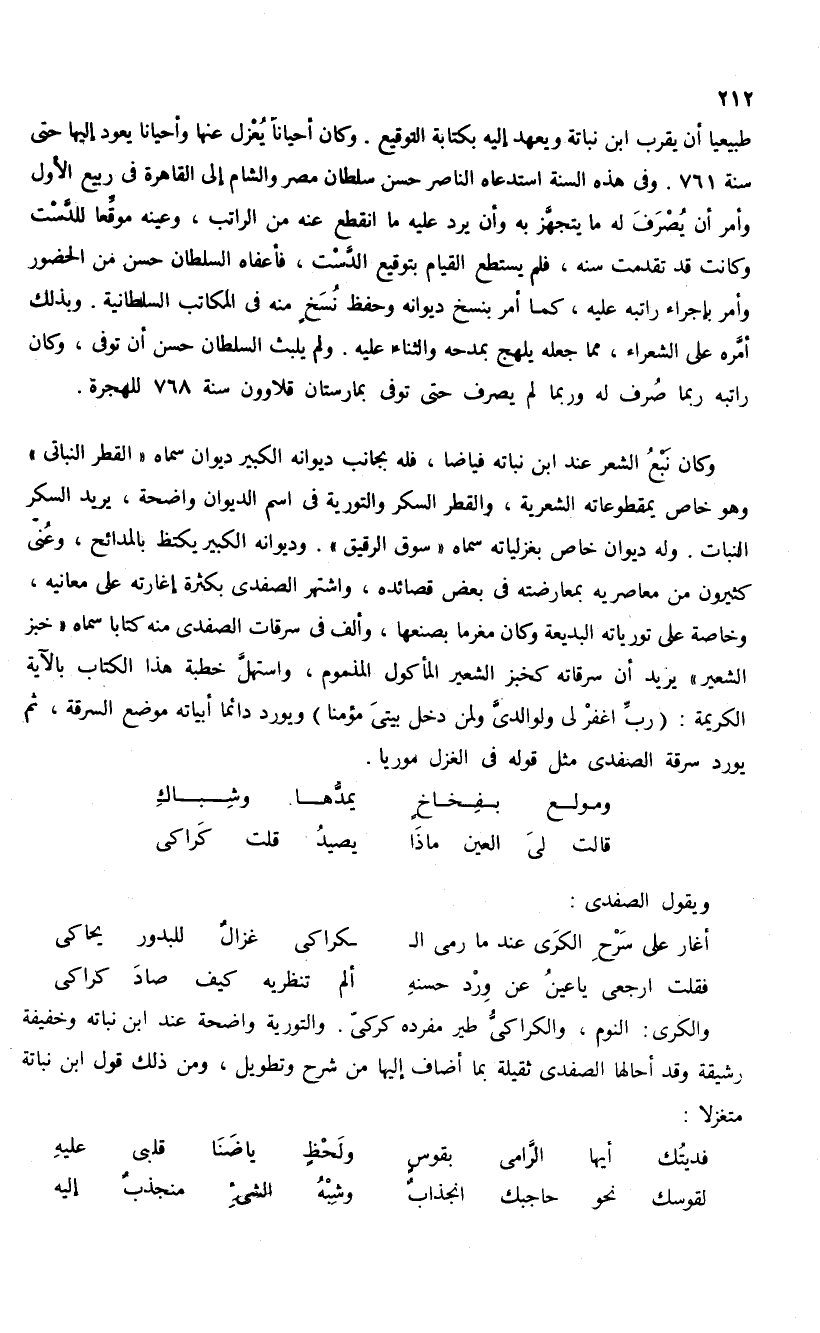 ٢١٢
طبيعيا أن يقرب ابن نباتة ويعهد إليه بكتابة التوقيع . وكان أحياناً يُعْزل عنها وأحيانا يعود إليها حتى
سنة ٧٦١ . وفى هذه السنة استدعاه الناصر حسن سلطان مصر والشام إلى القاهرة فى ربيع الأول
وأمر أن يُصْرَفَ له ما يتجهَّز به وأن يرد عليه ما انقطع عنه من الراتب ، وعينه موقِّعا للدَّسْت
وكانت قد تقدمت سنه ، فلم يستطع القيام بتوقيع الدَّسْت ، فأعفاه السلطان حسن من الحضور
وأمر بإجراء راتبه عليه ، كما أمر بنسخ ديوانه وحفظ نُسَخٍ منه فى المكاتب السلطانية . وبذلك
أمَّره على الشعراء ، مما جعله يلهج بمدحه والثناء عليه . ولم يلبث السلطان حسن أن توفى ، وكان
راتبه ربما صُرف له وربما لم يصرف حتى توفى بمارستان قلاوون سنة ٧٦٨ للهجرة .
وكان نَبْعُ الشعر عند ابن نباته فياضا ، فله بجانب ديوانه الكبير ديوان سماه « القطر النباتى »
وهو خاص بمقطوعاته الشعرية ، والقطر السكر والتورية فى اسم الديوان واضحة ، يريد السكر
النبات . وله ديوان خاص بغزلياته سماه « سوق الرقيق » . وديوانه الكبير يكتظ بالمدائح ، وعُنىّ
كثيرون من معاصريه بمعارضته فى بعض قصائده ، واشتهر الصفدى بكثرة إغارته على معانيه ،
وخاصة على تورياته البديعة وكان مغرما بصنعها ، وألف فى سرقات الصفدى منه كتابا سماه « خبز
الشعير » يريد أن سرقاته كخبز الشعير المأكول المذموم ، واستهلَّ خطبة هذا الكتاب بالآية
الكريمة : ( ربِّ اغفرْ لى ولوالدىَّ ولمن دخل بيتىَ مؤمنا ) ويورد دائما أبياته موضع السرقة ، ثم
يورد سرقة الصفدى مثل قوله فى الغزل موريا .
ومولع بفخاخٍ يمدُّها وشِباكِ
قالت لىَ العين ماذَا يصيدُ قلت كَراكى
ويقول الصفدى :
أغار على سَرْحِ الكرَى عند ما رمى الـ ـكراكى غزالٌ للبدور يحاكى
فقلت ارجعى ياعينُ عن وِرْد حسنهِ ألم تنظريه كيف صادَ كراكى
والكرى: النوم ، والكراكىُّ طير مفرده كركىّ . والتورية واضحة عند ابن نباته وخفيفة
رشيقة وقد أحالها الصفدى ثقيلة بما أضاف إليها من شرح وتطويل ، ومن ذلك قول ابن نباتة
متغزلا :
فديتُك أيها الرَّامى بقوسٍ ولَحْظٍ ياضَنَا قلبى عليهِ
لقوسك نحو حاجبك انجذابٌ وشِبْهُ الشىْءِ منجذبٌ إليه